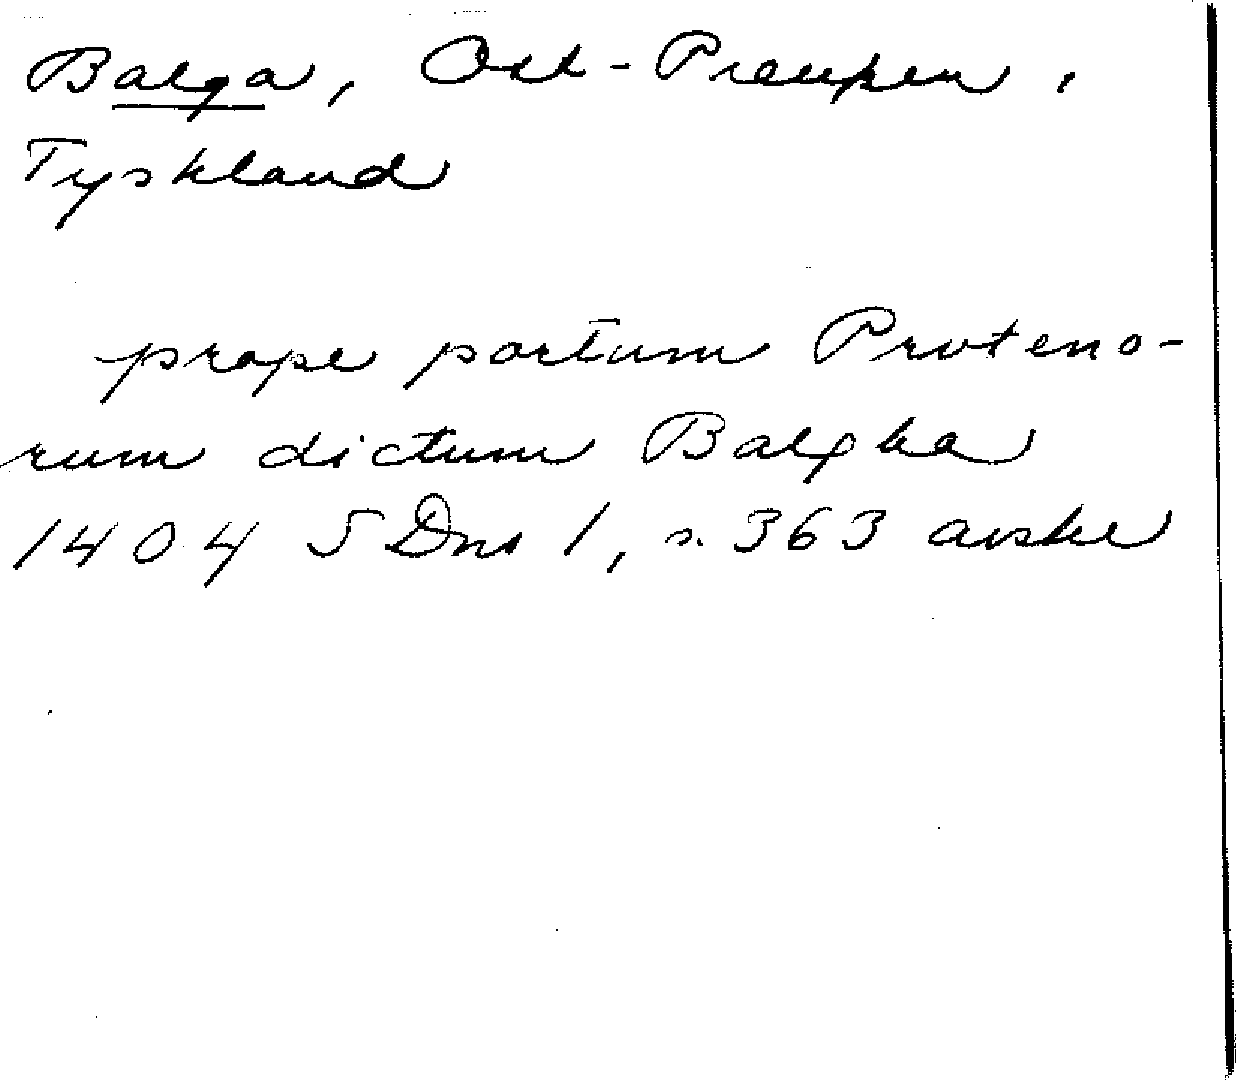 Balga, Ost-Preußen,
Tyskland
prope portum Pruteno-
rum dictum Balgha
1404 SDns 1, s. 363 avskr